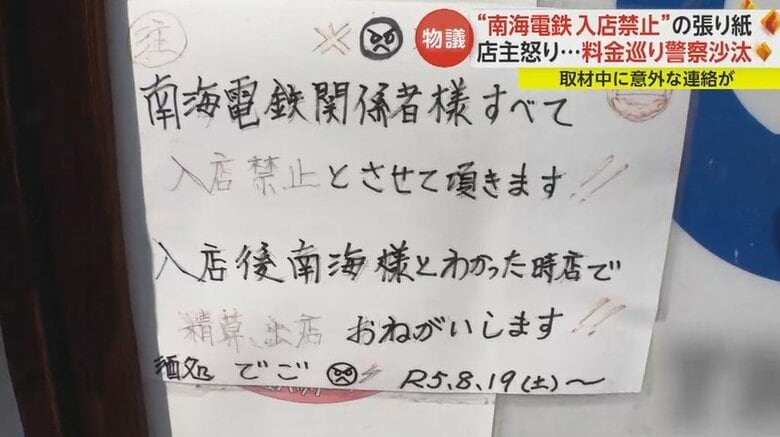 物議
“南海電鉄 入店禁止”の張り紙
店主怒り…料金巡り警察沙汰
取材中に意外な連絡が
注
南海電鉄関係者様すべて
入店禁止とさせて頂きます!!
入店後南海様とわかった時店で
精算、出店 おねがいします!!
酒処 でご R5.8.19(土)~